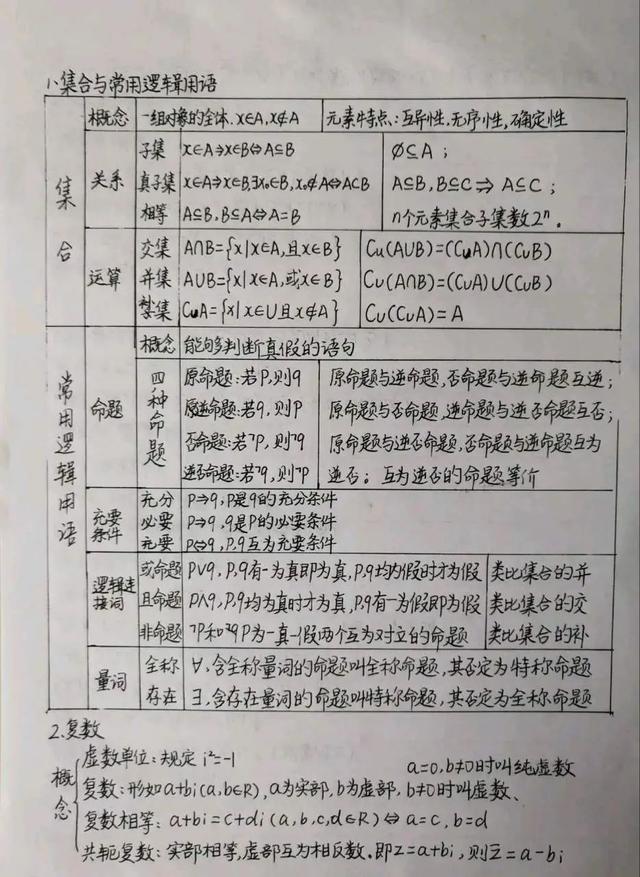 1、集合与常用逻辑用语
集合
概念 一组对象的全体. x∈A, x∉A 元素特点:互异性.无序性,确定性
关系
子集 x∈A⇒x∈B⇔A⊆B ∅⊆A;
真子集 x∈A⇒x∈B,∃x₀∈B,x₀∉A⇔A⊂B A⊆B,B⊆C⇒A⊆C;
相等 A⊆B,B⊆A⇔A=B n个元素集合子集数2ⁿ.
运算
交集 A∩B={x|x∈A,且x∈B} Cu(A∪B)=(CuA)∩(CuB)
并集 A∪B={x|x∈A,或x∈B} Cu(A∩B)=(CuA)∪(CuB)
集 CuA={x|x∈U且x∉A} Cu(CuA)=A
常用逻辑用语
概念 能够判断真假的语句
命题
四种命题
原命题:若P,则q 原命题与逆命题,否命题与逆命题互逆;
逆命题:若q,则P 原命题与否命题,逆命题与逆否命题互否;
否命题:若¬P,则¬q 原命题与逆否命题,否命题与逆命题互为
逆否命题:若¬q,则¬P 逆否;互为逆否的命题等价
充要条件
充分 P⇒q,P是q的充分条件
必要 P⇒q,q是P的必要条件
充要 P⇔q,P.q互为充要条件
逻辑连接词
或命题 P∨q,P.q有一为真即为真,P.q均为假时才为假 类比集合的并
且命题 P∧q,P.q均为真时才为真,P.q有一为假即为假 类比集合的交
非命题 ¬P和¬q P为一真一假两个互为对立的命题 类比集合的补
量词
全称 ∀,含全称量词的命题叫全称命题,其否定为特称命题
存在 ∃,含存在量词的命题叫特称命题,其否定为全称命题
2.复数
概念
虚数单位:规定i²=-1
a=0,b≠0时叫纯虚数
复数:形如a+bi(a,b∈R),a为实部,b为虚部,b≠0时叫虚数、
复数相等:a+bi=c+di(a,b,c,d∈R)⇔a=c,b=d
共轭复数:实部相等,虚部互为相反数.即z=a+bi,则z̅=a-bi